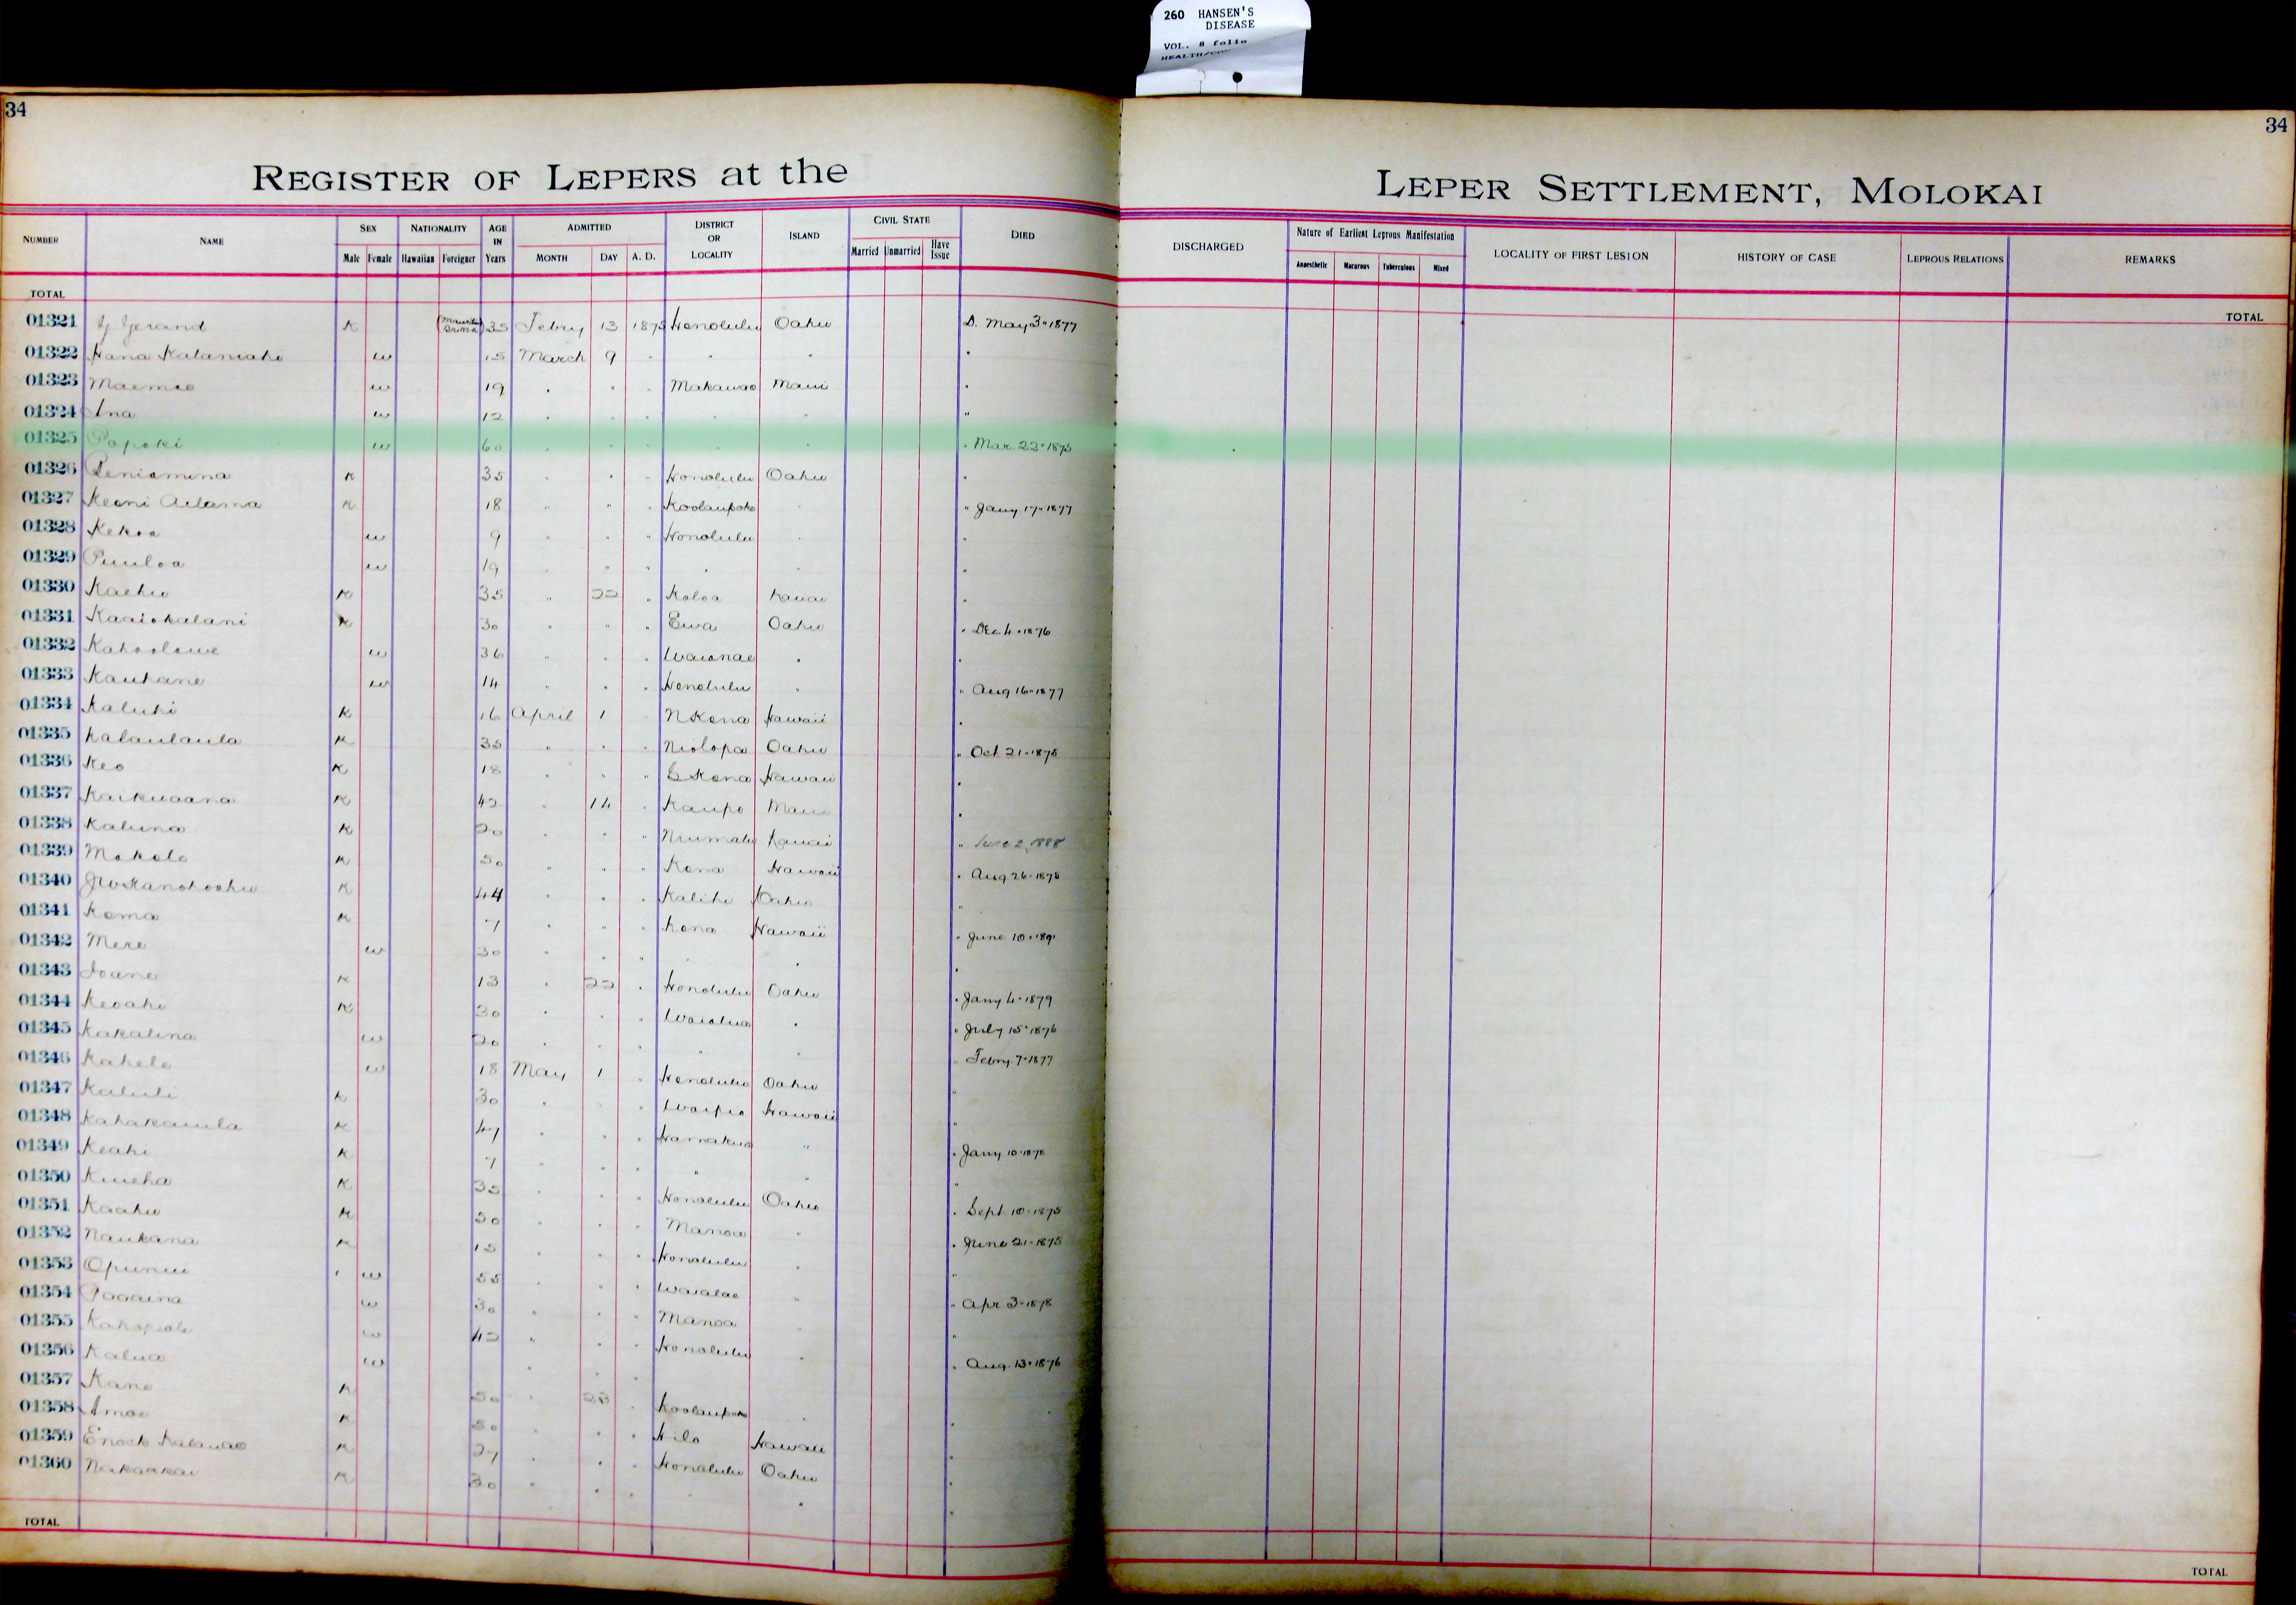 260 HANSEN'S
DISEASE
VOL. 8 folio
34
34
REGISTER OF LEPERS at the
LEPER SETTLEMENT, MOLOKAI
NUMBER NAME SEX NATIONALITY AGE IN Years ADMITTED DISTRICT OR LOCALITY ISLAND CIVIL STATE DIED
Male Female Hawaiian Foreigner MONTH DAY A. D. Married Unmarried Have Issue
DISCHARGED Nature of Earliest Leprous Manifestation LOCALITY OF FIRST LESION HISTORY OF CASE LEPROUS RELATIONS REMARKS
Anaesthetic Macurous Tuberculous Mixed
TOTAL
TOTAL
01321 Gerand K 35 Febry 13 1875 Honolulu Oahu D. May 3 " 1877
01322 Hana Kalaniahi w 15 March 9 " " " "
01323 Maemae w 19 " " " Makawao Maui "
01324 Ana w 12 " " " " " "
01325 Popoki w 60 " " " " " " Mar 22 " 1875
01326 Peniamina K 35 " " " Honolulu Oahu "
01327 Keoni Ailama K 18 " " " Koolaupoko " " Jany 17 " 1877
01328 Kekoa w 9 " " " Honolulu " "
01329 Puuloa w 19 " " " " " "
01330 Kaehu K 35 " 22 " Koloa Kauai "
01331 Kaaiokalani K 30 " " " Ewa Oahu " Dec 4 " 1876
01332 Kahoolawe w 36 " " " Waianae " "
01333 Kauhane w 14 " " " Honolulu " " Aug 16 " 1877
01334 Kaluhi K 16 April 1 " N Kona Hawaii "
01335 Kalaulaula K 35 " " " Niolopa Oahu " Oct 21 " 1875
01336 Keo K 18 " " " S Kona Hawaii "
01337 Kaikuaana K 42 " 14 " Kaupo Maui "
01338 Kaluna K 20 " " " Niumalu Kauai " June 2, 1888
01339 Makole K 50 " " " Kona Hawaii " Aug 26 " 1878
01340 JW Kanohoohu K 44 " " " Kalihi Oahu "
01341 Kema K 7 " " " Kona Hawaii " June 10 " 1891
01342 Mere w 30 " " " " " "
01343 Ioane K 13 " 22 " Honolulu Oahu " Jany 4 " 1879
01344 Keoahi K 30 " " " Waialua " " July 15 " 1876
01345 Kakalina w 20 " " " " " " Febry 7 " 1877
01346 Kahele w 18 May 1 " Honolulu Oahu "
01347 Kaluli K 30 " " " Waipio Hawaii "
01348 Kahakauila K 47 " " " Hamakua " " Jany 10 " 1878
01349 Keahi K 7 " " " " " "
01350 Kuueha K 35 " " " Honolulu Oahu " Sept 10 " 1875
01351 Kaahu K 50 " " " Manoa " " June 21 " 1875
01352 Naukana K 15 " " " Honolulu " "
01353 Opunui w 55 " " " Waialae " " Apr 3 " 1878
01354 Paaaina w 30 " " " Manoa " "
01355 w 42 " " " Honolulu " " Aug 13 " 1876
01356 Kalua w " " "
01357 Kane K 50 " 23 " Koolaupoko " "
01358 Amoe K 50 " " " Hilo Hawaii "
01359 Enoch Kalauao K 27 " " " Honolulu Oahu "
01360 Nakaakai K 30 " " " " " "
TOTAL
TOTAL